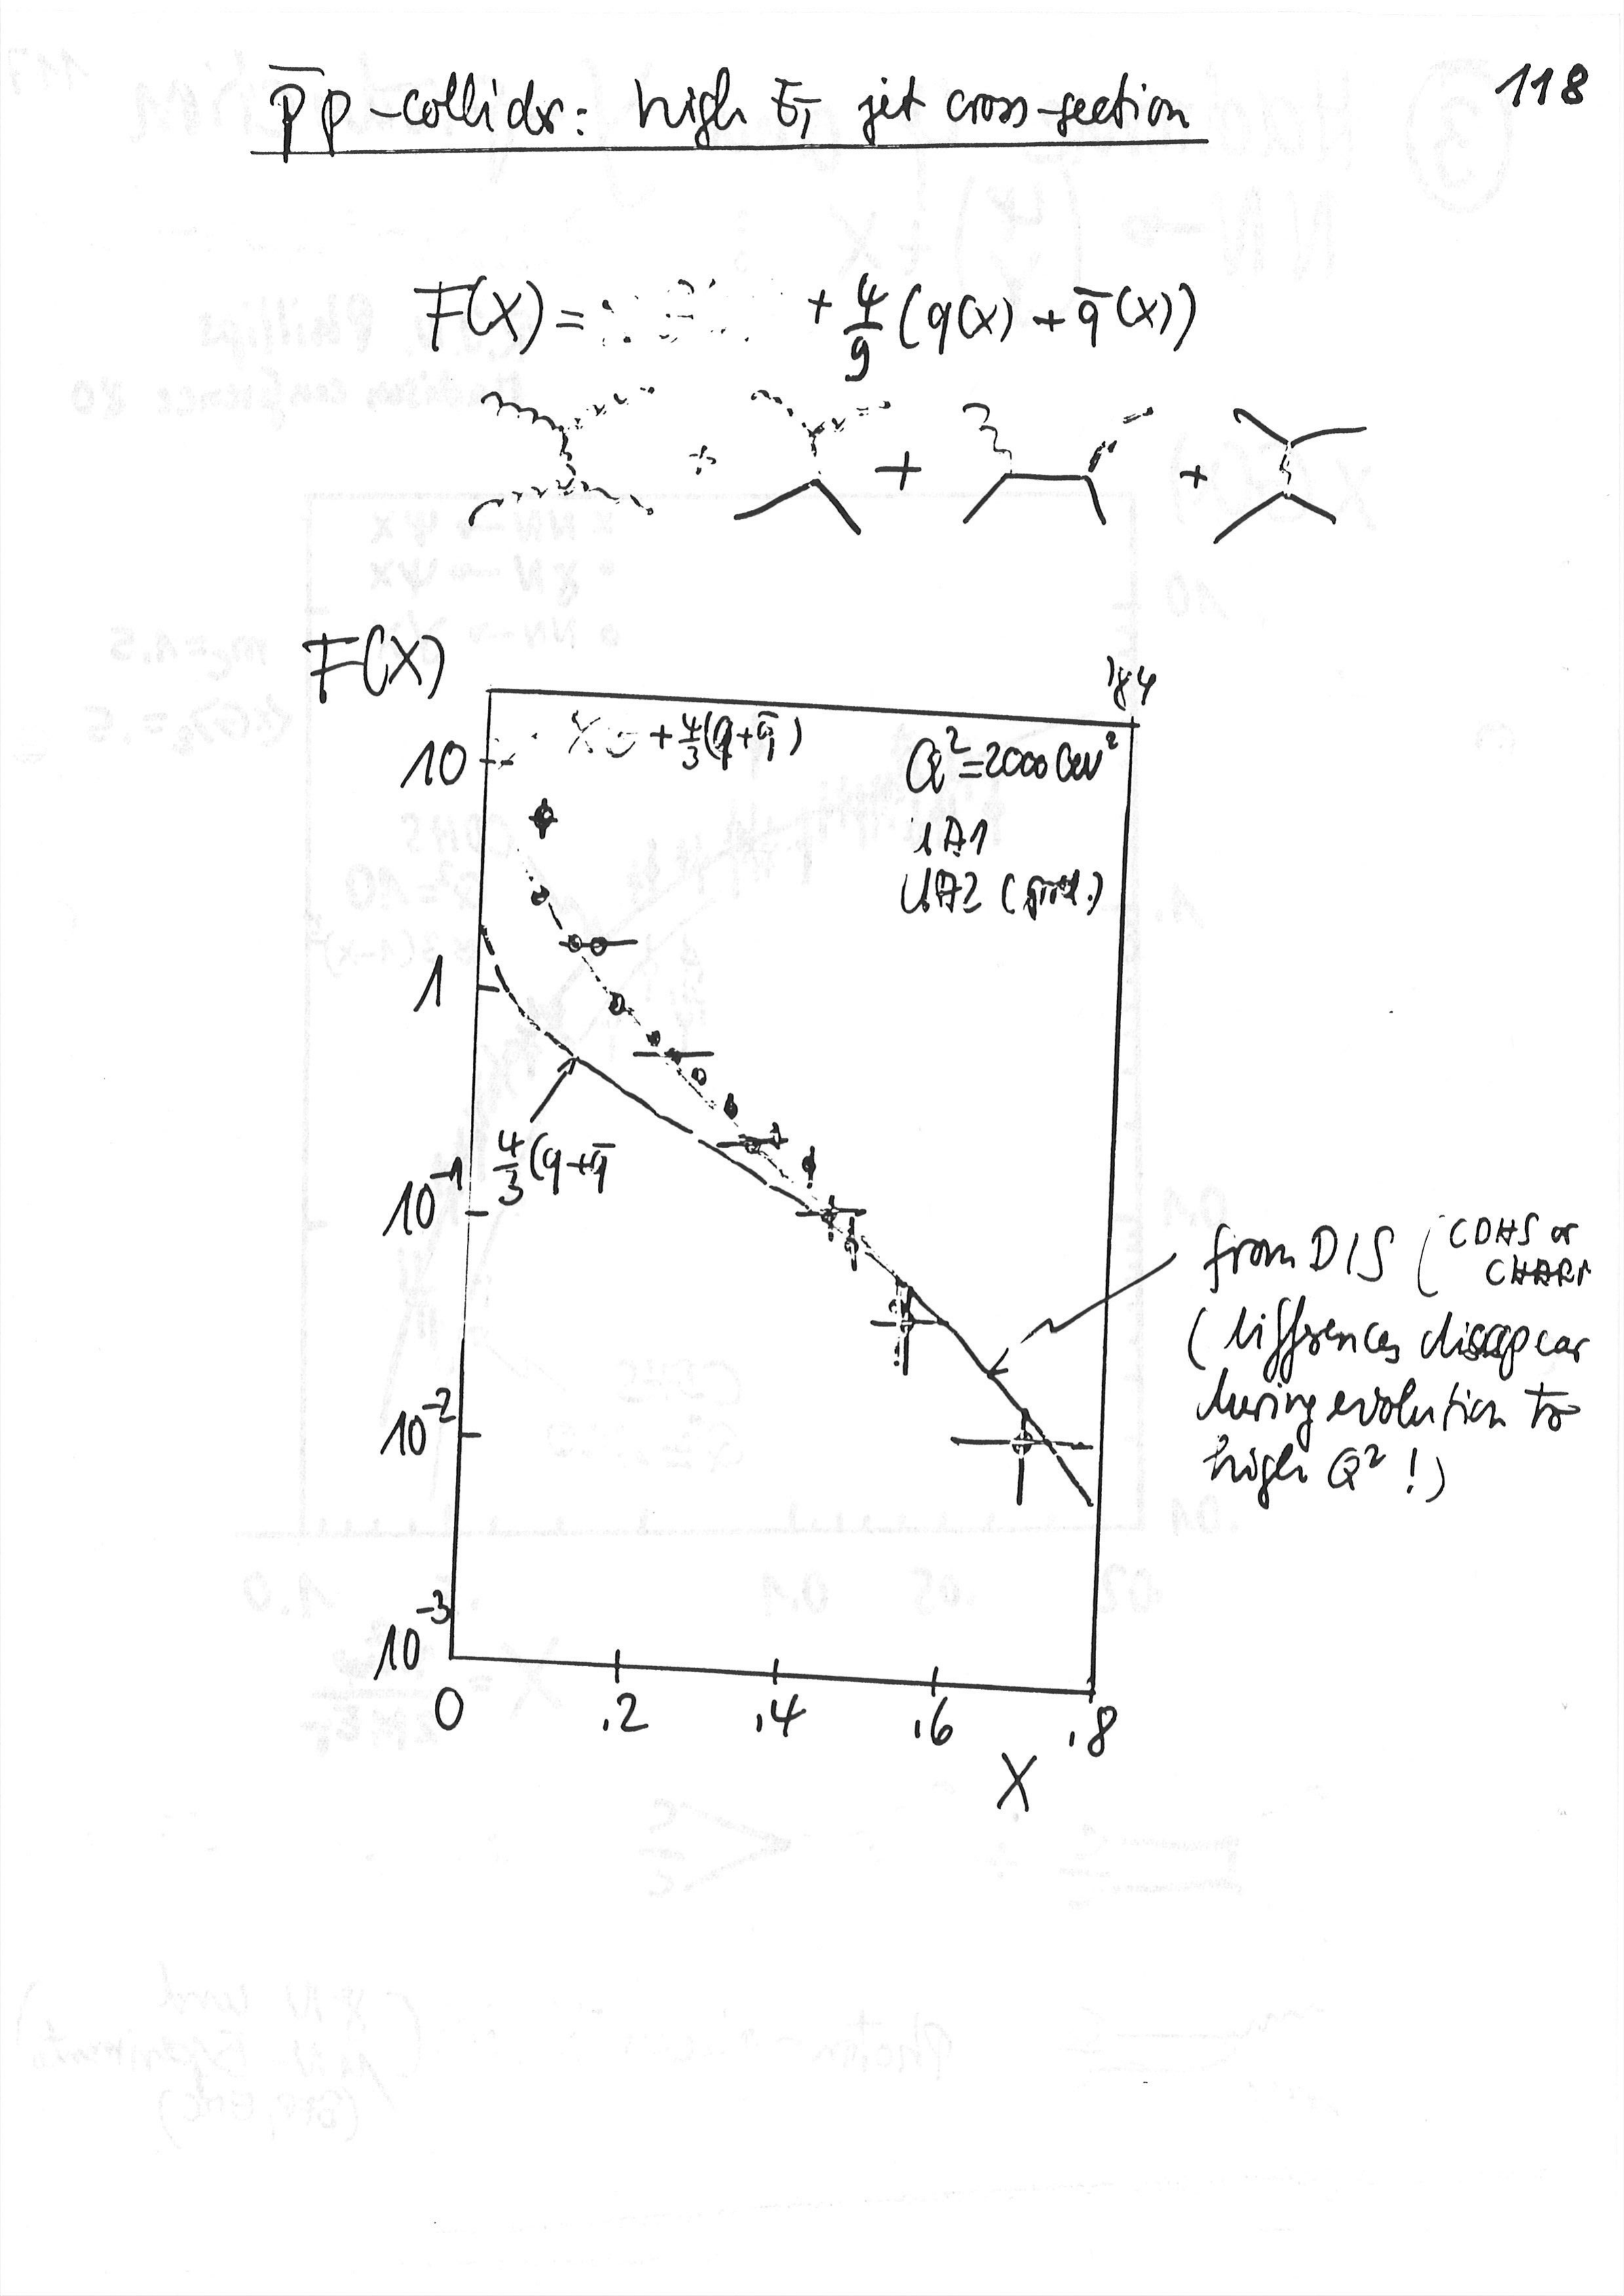 118
p̄p-collider: high E_T jet cross-section
F(X) = + 4/9 (q(x) + q̄(x))
+ + +
F(X)
'84
+ 4/3(q+q̄)
Q²=2000 GeV²
UA2
10
1
10⁻¹
10⁻²
10⁻³
4/3(q+q̄
from DIS (CDHS or
(differences disappear
during evolution to
high Q² !)
0 .2 .4 .6 .8
X